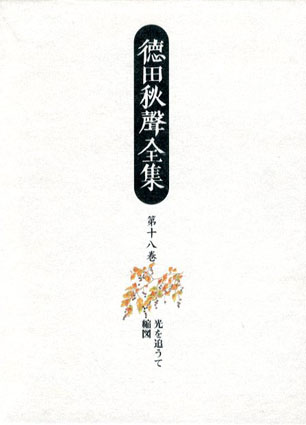 德田秋聲全集
第十八巻
光を追うて
縮図